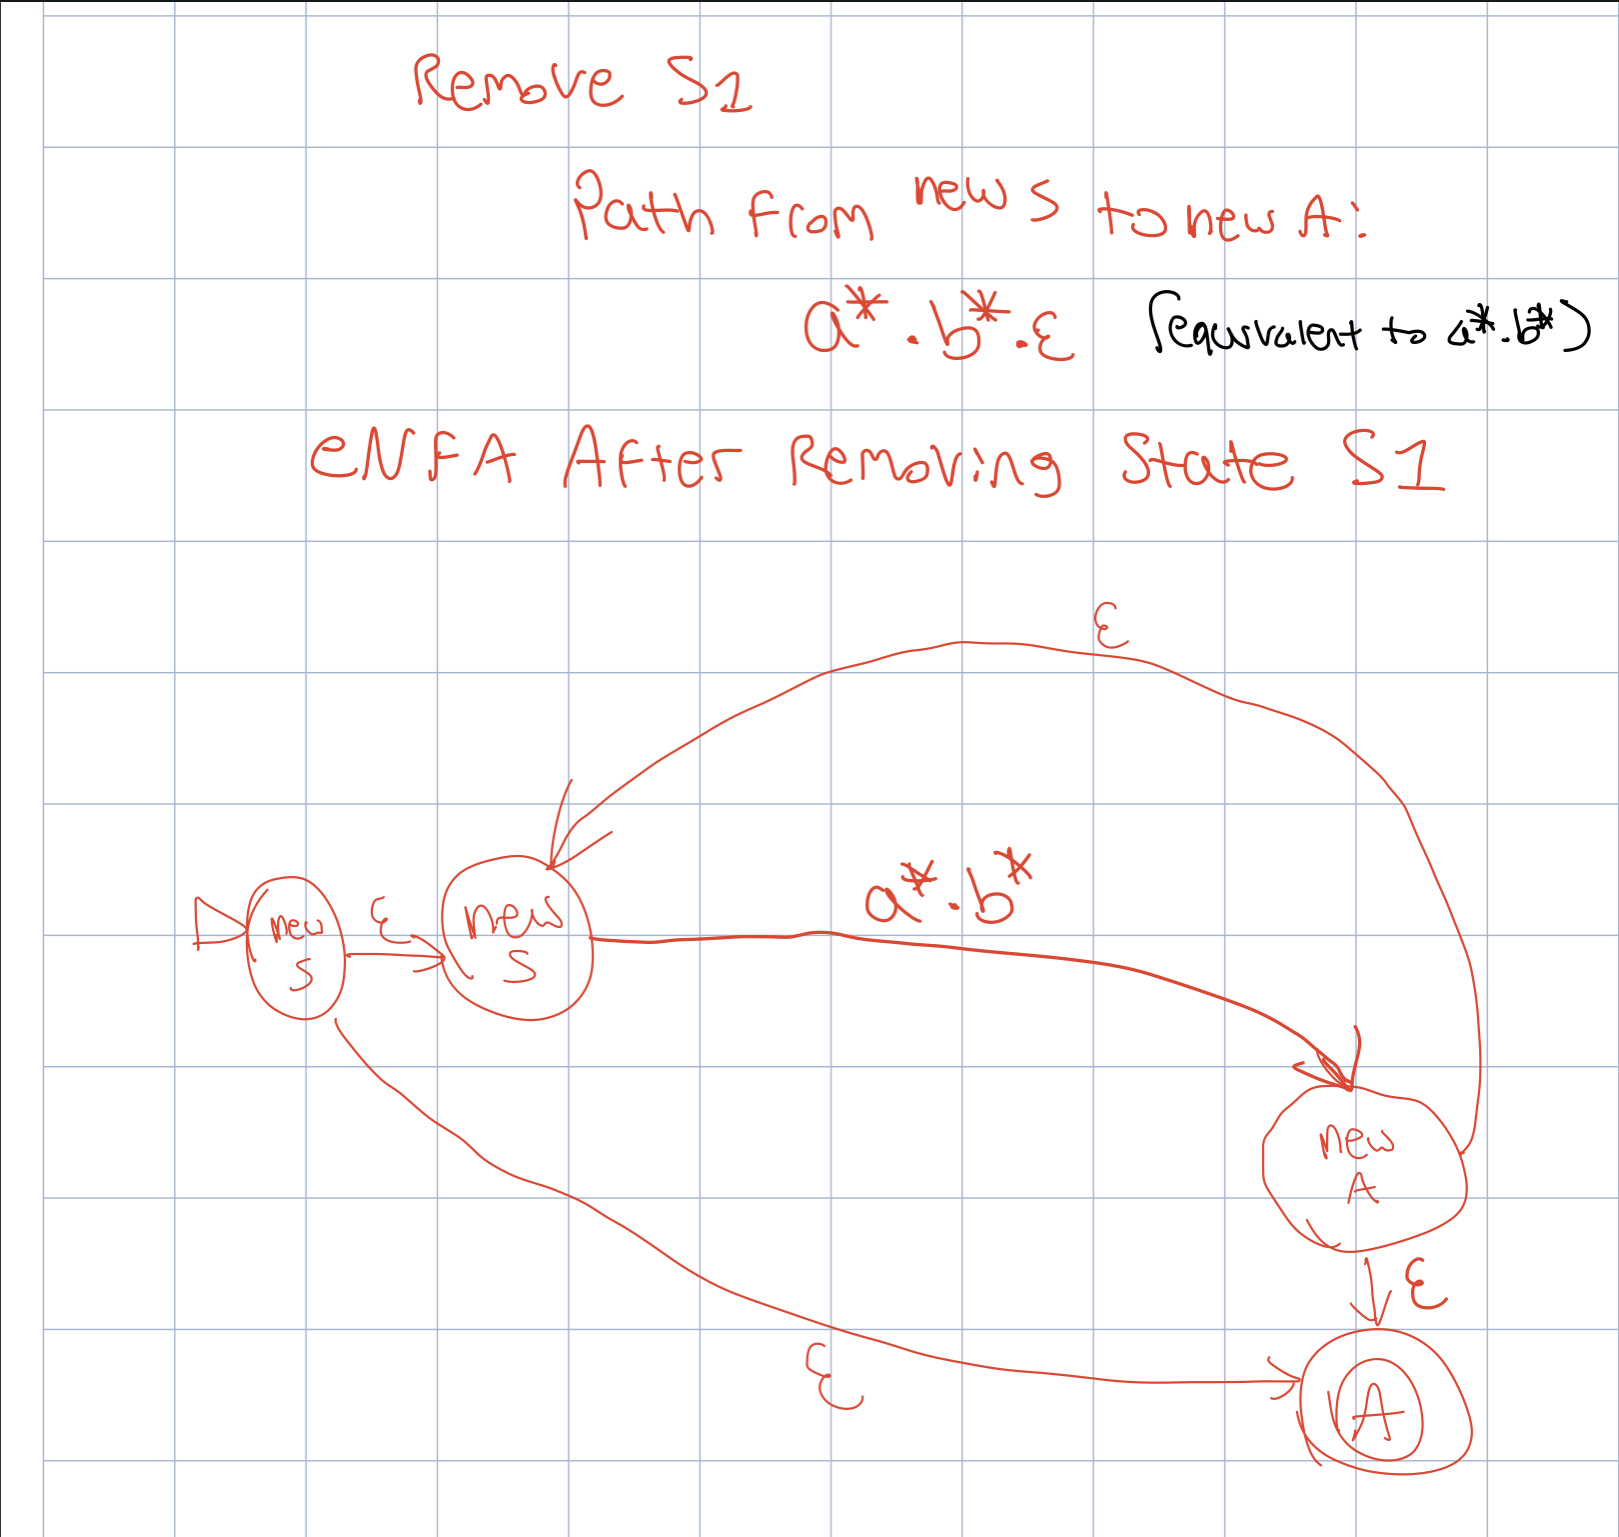 Remove S1
Path from new S to new A:
a* . b* . ε (equivalent to a* . b*)
eNFA After Removing State S1
ε
a* . b*
new
S
ε
new
S
new
A
ε
ε
A